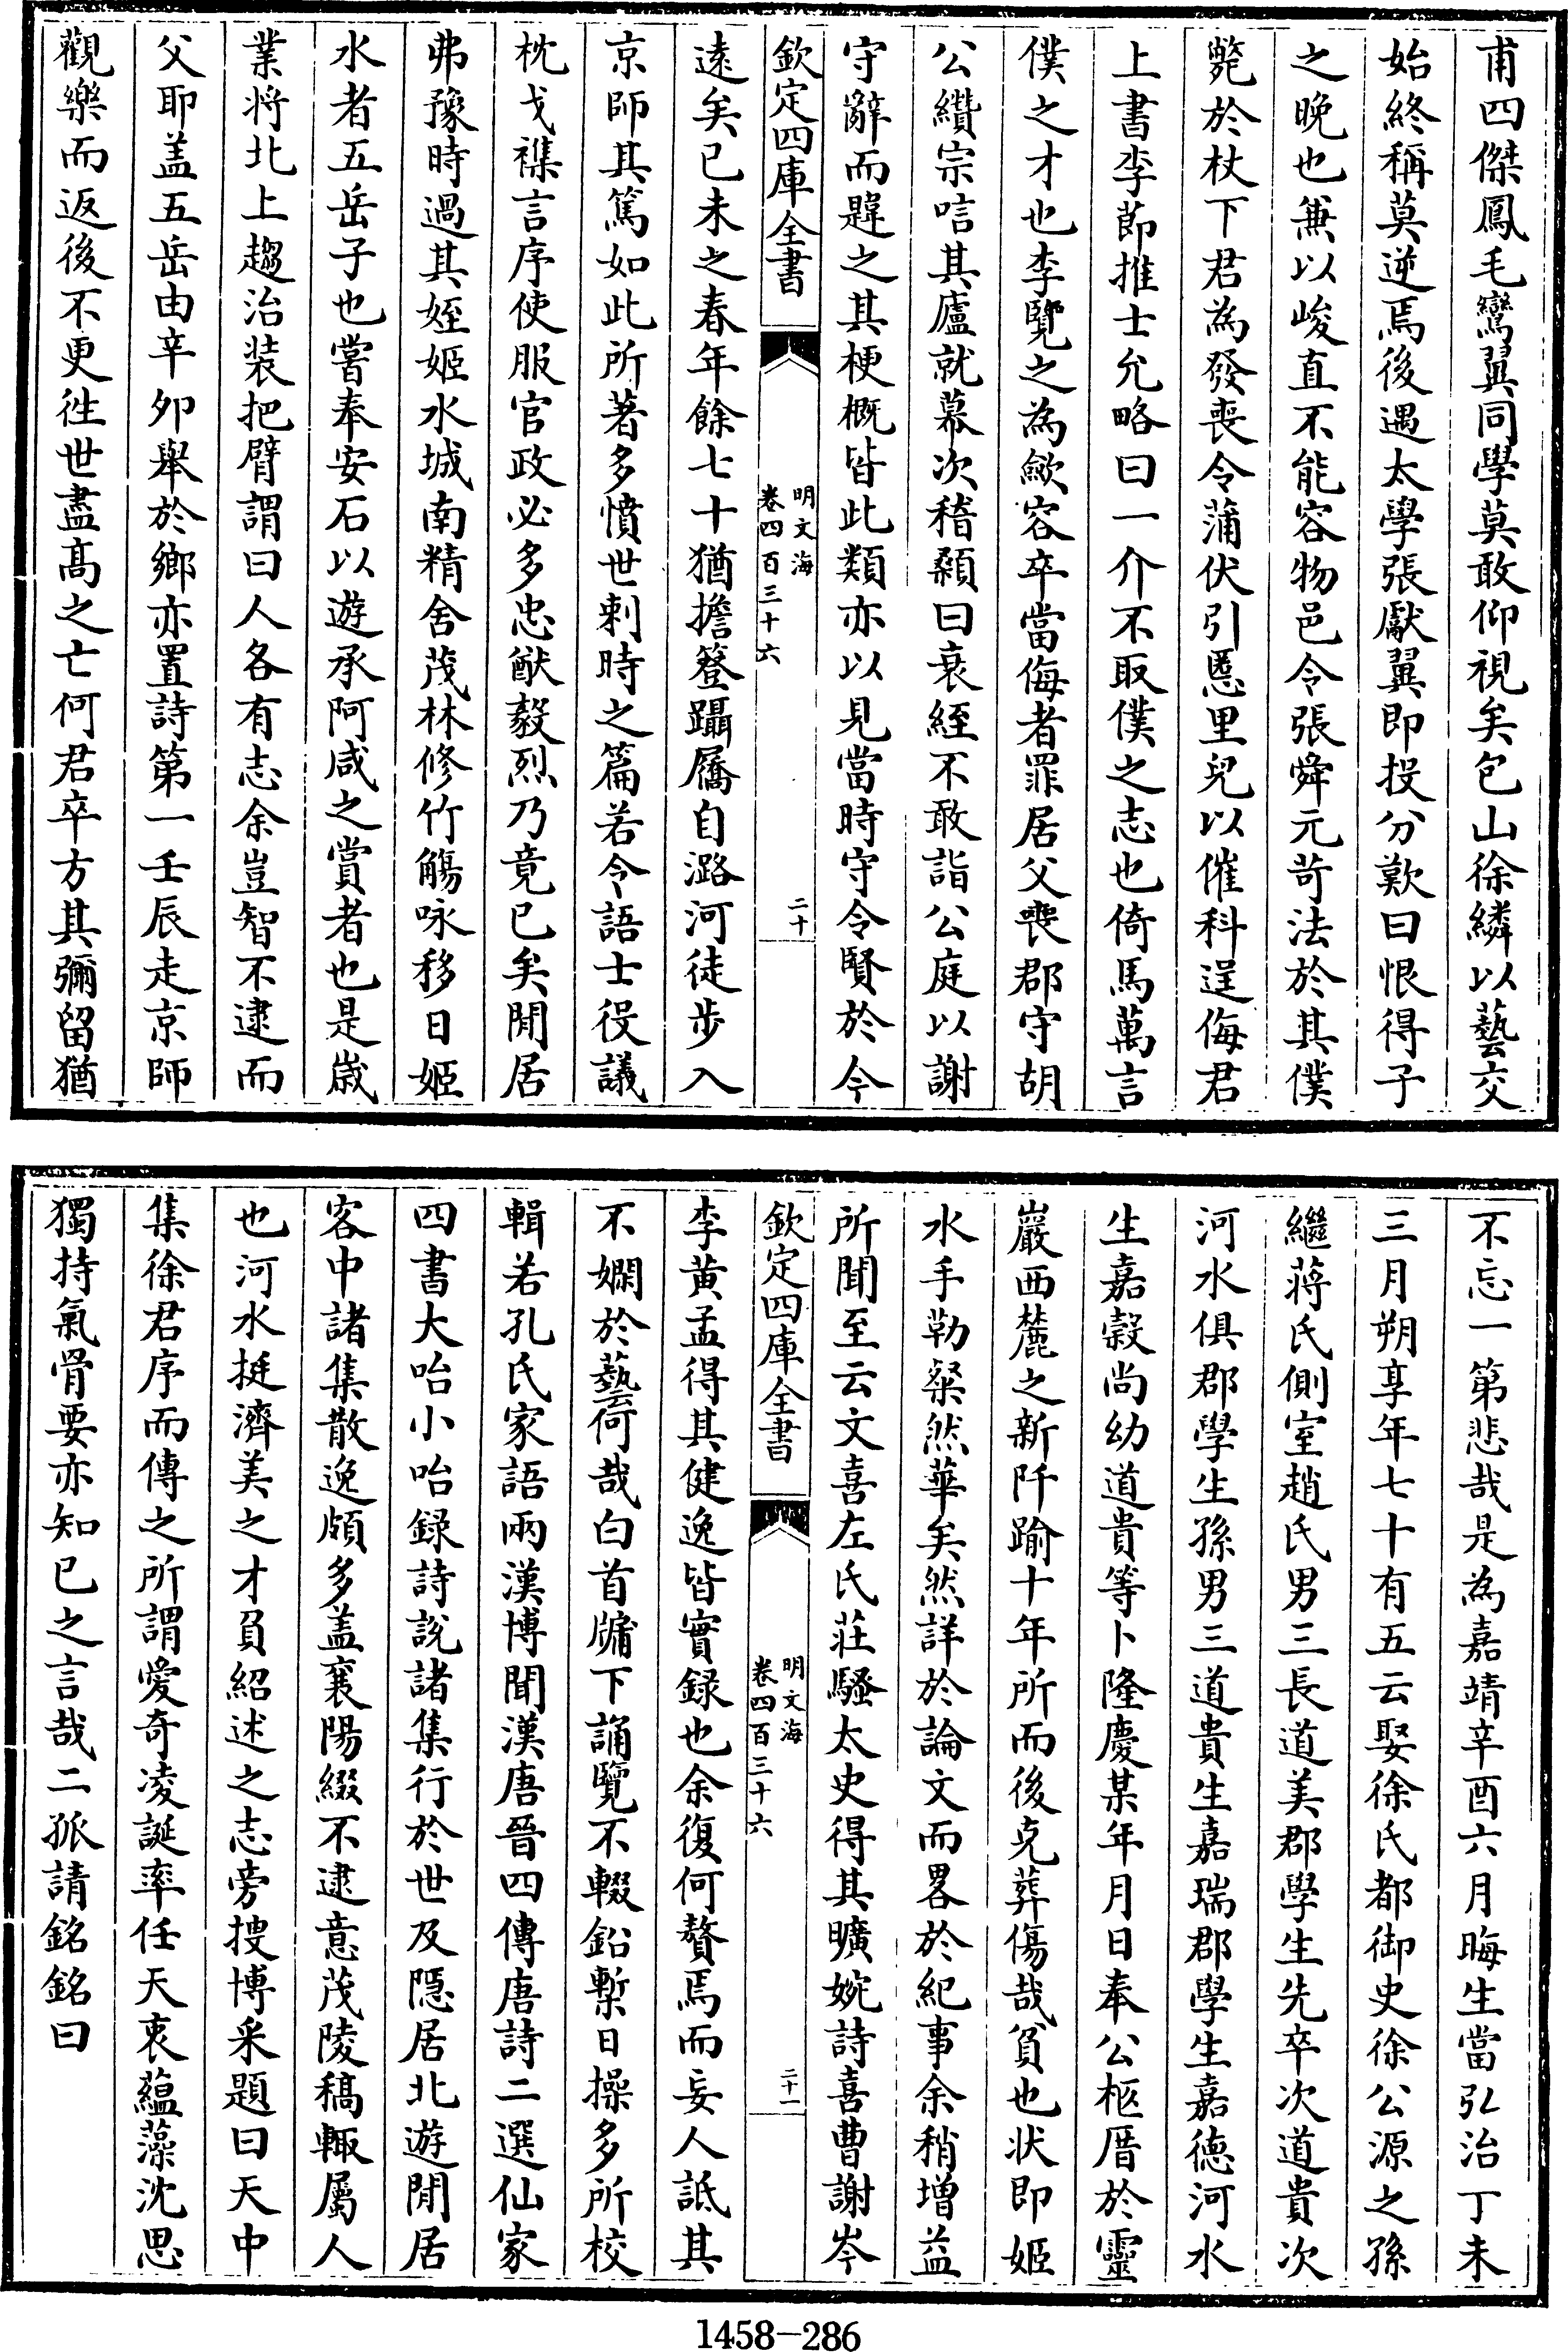 甫四傑鳳毛鸞翼同學莫敢仰視矣包山徐繗以藝交
始終稱莫逆焉後遇太學張獻翼即投分歎曰恨得子
之晚也無以峻直不能容物邑令張舜元苛法於其僕
斃於杖下君為發喪令蒲伏引慝里兒以催科逞侮君
上書李節推士允略曰一介不取僕之志也倚馬萬言
僕之才也李覽之為歛容卒當侮者罪居父喪郡守胡
公纘宗唁其廬就幕次稽顙曰衰絰不敢詣公庭以謝
守辭而韙之其梗概皆此類亦以見當時守令賢於今
欽定四庫全書
明文海
卷四百三十六
二十
遠矣已未之春年餘七十猶擔簦躡屩自潞河徒步入
京師其篤如此所著多憤世刺時之篇若令語士役議
枕戈襍言序使服官政必多忠猷毅烈乃竟已矣閒居
弗豫時過其姪姬水城南精舍茂林修竹觴咏移日姬
水者五岳子也嘗奉安石以遊承阿咸之賞者也是歲
業將北上趨治装把臂謂曰人各有志余豈智不逮而
父耶盖五岳由辛夘舉於鄉亦置詩第一壬辰走京師
觀樂而返後不更徃世盡髙之亡何君卒方其彌留猶
不忘一第悲哉是為嘉靖辛酉六月晦生當弘治丁未
三月朔享年七十有五云娶徐氏都御史徐公源之孫
繼蔣氏側室趙氏男三長道美郡學生先卒次道貴次
河水俱郡學生孫男三道貴生嘉瑞郡學生嘉德河水
生嘉穀尚幼道貴等卜隆慶某年月日奉公柩厝於靈
巖西麓之新阡踰十年所而後克葬傷哉貧也状即姬
水手勒粲然華矣然詳於論文而畧於紀事余稍增益
所聞至云文喜左氏莊騷太史得其曠婉詩喜曹謝岑
欽定四庫全書
明文海
卷四百三十六
二十一
李黄孟得其健逸皆實録也余復何贅焉而妄人詆其
不嫻於藝何哉白首牖下誦覽不輟鉛槧日操多所校
輯若孔氏家語兩漢博聞漢唐晉四傳唐詩二選仙家
四書大咍小咍録詩説諸集行於世及隠居北遊閒居
客中諸集散逸頗多盖襄陽綴不逮意茂陵稿輒屬人
也河水挺濟美之才負紹述之志旁搜博采題曰天中
集徐君序而傳之所謂愛奇凌誕率任天衷藴藻沈思
獨持氣骨要亦知已之言哉二孤請銘銘曰
1458-286